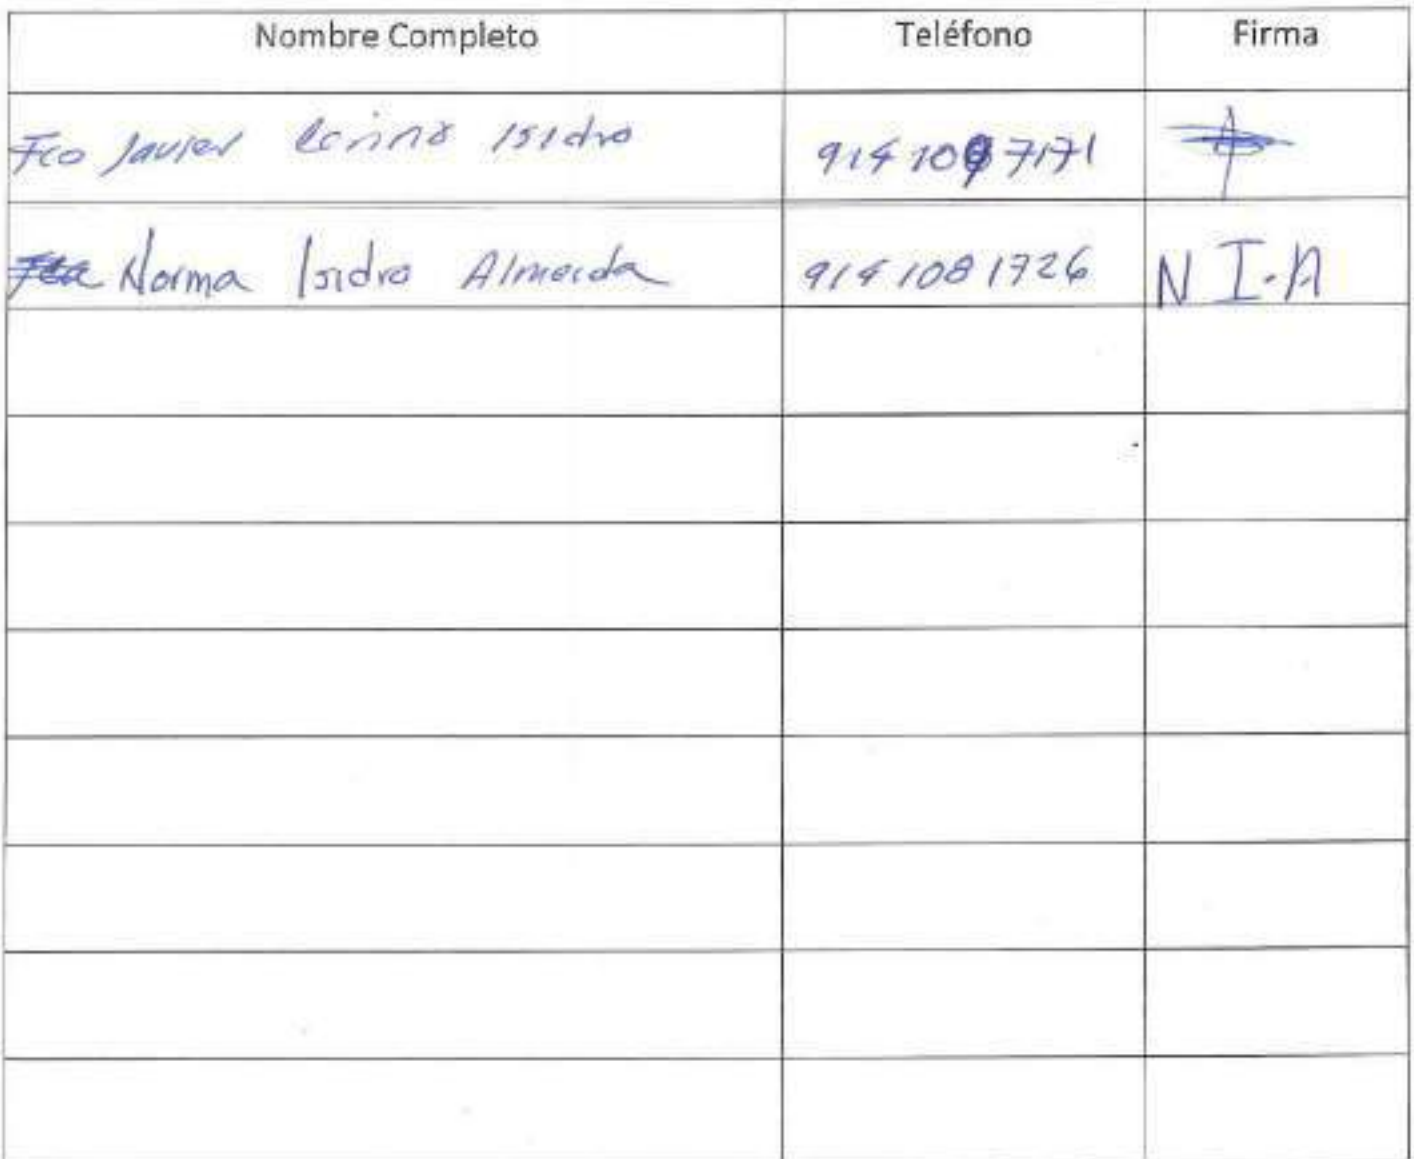 Nombre Completo Teléfono Firma
Fco Javier Isidro 914 10 7171
Norma Isidro Almeida 914 108 1726 N I.A